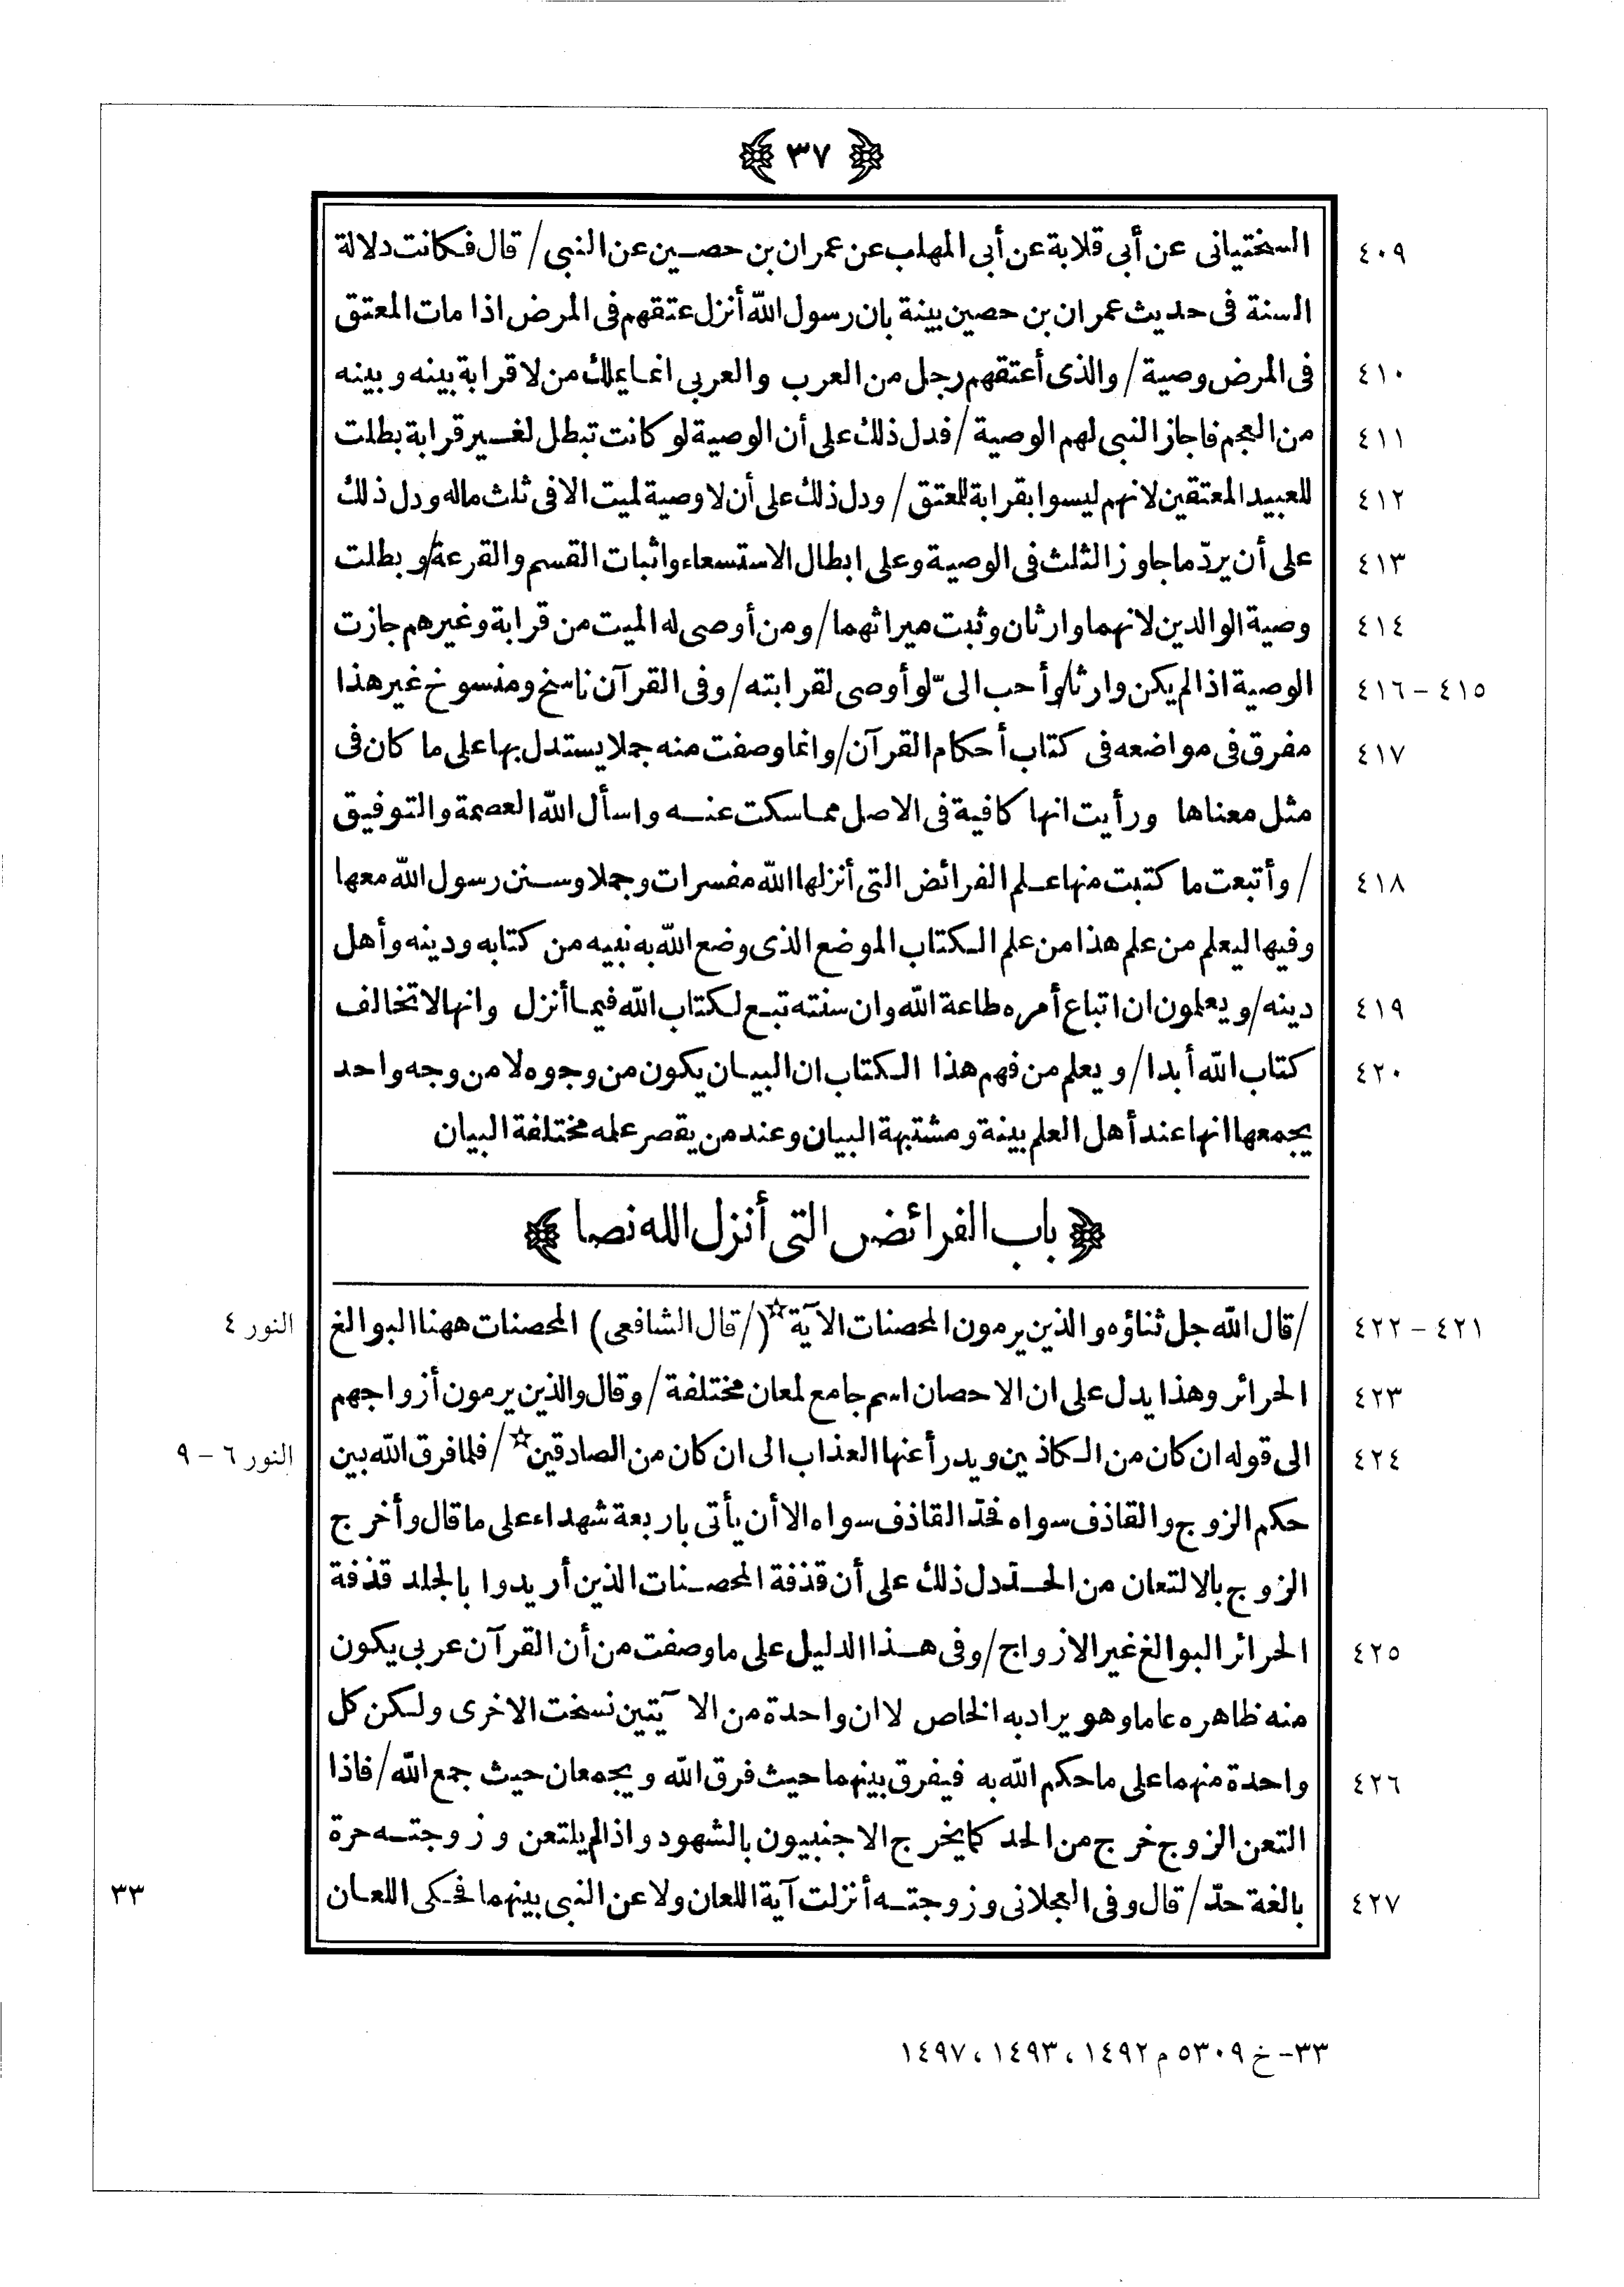 ﴿ ٣٧ ﴾
السختيانى عن أبى قلابة عن أبى المهلب عن عمران بن حصين عن النبى / قال فكانت دلالة ٤٠٩
السنة فى حديث عمران بن حصين بينة بان رسول الله أنزل عتقهم فى المرض اذا مات المعتق
فى المرض وصية / والذى أعتقهم رجل من العرب والعربى انما يملك من لا قرابة بينه وبينه ٤١٠
من العجم فاجاز النبى لهم الوصية / فدل ذلك على أن الوصية لو كانت تبطل لغير قرابة بطلت ٤١١
للعبيد المعتقين لانهم ليسوا بقرابة للمعتق / ودل ذلك على أن لا وصية لميت الا فى ثلث ماله ودل ذلك ٤١٢
على أن يردّ ما جاوز الثلث فى الوصية وعلى ابطال الاستسعاء واثبات القسم والقرعة / وبطلت ٤١٣
وصية الوالدين لانهما وارثان وثبت ميراثهما / ومن أوصى له الميت من قرابة وغيرهم جازت ٤١٤
الوصية اذا لم يكن وارثا / وأحب الىّ لو أوصى لقرابته / وفى القرآن ناسخ ومنسوخ غير هذا ٤١٥ – ٤١٦
مفرق فى مواضعه فى كتاب أحكام القرآن / وانما وصفت منه جملا يستدل بها على ما كان فى ٤١٧
مثل معناها ورأيت انها كافية فى الاصل مما سكت عنه واسأل الله العصمة والتوفيق
/ وأتبعت ما كتبت منها علم الفرائض التى أنزلها الله مفسرات وجملا وسنن رسول الله معها ٤١٨
وفيها ليعلم من علم هذا من علم الكتاب الموضع الذى وضع الله به نبيه من كتابه ودينه وأهل
دينه / ويعلمون ان اتباع أمره طاعة الله وان سنته تبع لكتاب الله فيما أنزل وانها لا تخالف ٤١٩
كتاب الله أبدا / ويعلم من فهم هذا الكتاب ان البيان يكون من وجوه لا من وجه واحد ٤٢٠
يجمعها انها عند أهل العلم بينة ومشتبهة البيان وعند من يقصر علمه مختلفة البيان
﴿ باب الفرائض التى أنزل الله نصا ﴾
/ قال الله جل ثناؤه والذين يرمون المحصنات الآية☆ (/ قال الشافعى) المحصنات ههنا البوالغ ٤٢١ – ٤٢٢ النور ٤
الحرائر وهذا يدل على ان الاحصان اسم جامع لمعان مختلفة / وقال والذين يرمون أزواجهم ٤٢٣
الى قوله ان كان من الكاذبين ويدرأ عنها العذاب الى ان كان من الصادقين☆ / فلما فرق الله بين ٤٢٤ النور ٦ – ٩
حكم الزوج والقاذف سواه فحدّ القاذف سواه الا أن يأتى باربعة شهداء على ما قال وأخرج
الزوج بالالتعان من الحدّ دل ذلك على أن قذفة المحصنات الذين أريدوا بالجلد قذفة
الحرائر البوالغ غير الازواج / وفى هذا الدليل على ما وصفت من أن القرآن عربى يكون ٤٢٥
منه ظاهره عاما وهو يراد به الخاص لا ان واحدة من الآيتين نسخت الاخرى ولكن كل
واحدة منهما على ما حكم الله به فيفرق بينهما حيث فرق الله ويجمعان حيث جمع الله / فاذا ٤٢٦
التعن الزوج خرج من الحد كما يخرج الاجنبيون بالشهود واذا لم يلتعن وزوجته حرة
بالغة حدّ / قال وفى العجلانى وزوجته أنزلت آية اللعان ولاعن النبى بينهما فحكى اللعان ٤٢٧ ٣٣
٣٣– خ ٥٣٠٩ م ١٤٩٢، ١٤٩٣، ١٤٩٧